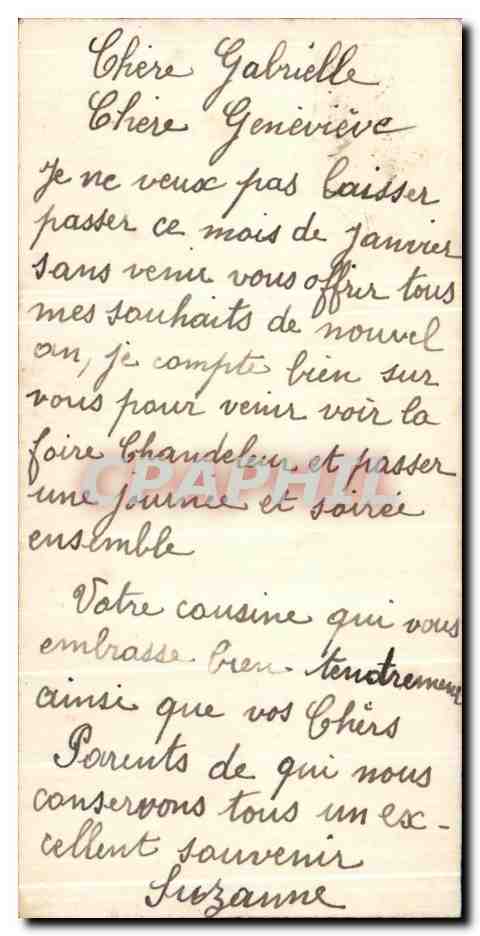 Chère Gabrielle
Chère Geneviève
Je ne veux pas laisser
passer ce mois de janvier
sans venir vous offrir tous
mes souhaits de nouvel
an, je compte bien sur
vous pour venir voir la
foire Chandeleur et passer
CPAPHIL
une journée et soirée
ensemble
Votre cousine qui vous
embrasse bien tendrement
ainsi que vos Chers
Parents de qui nous
conservons tous un ex-
cellent souvenir
Suzanne